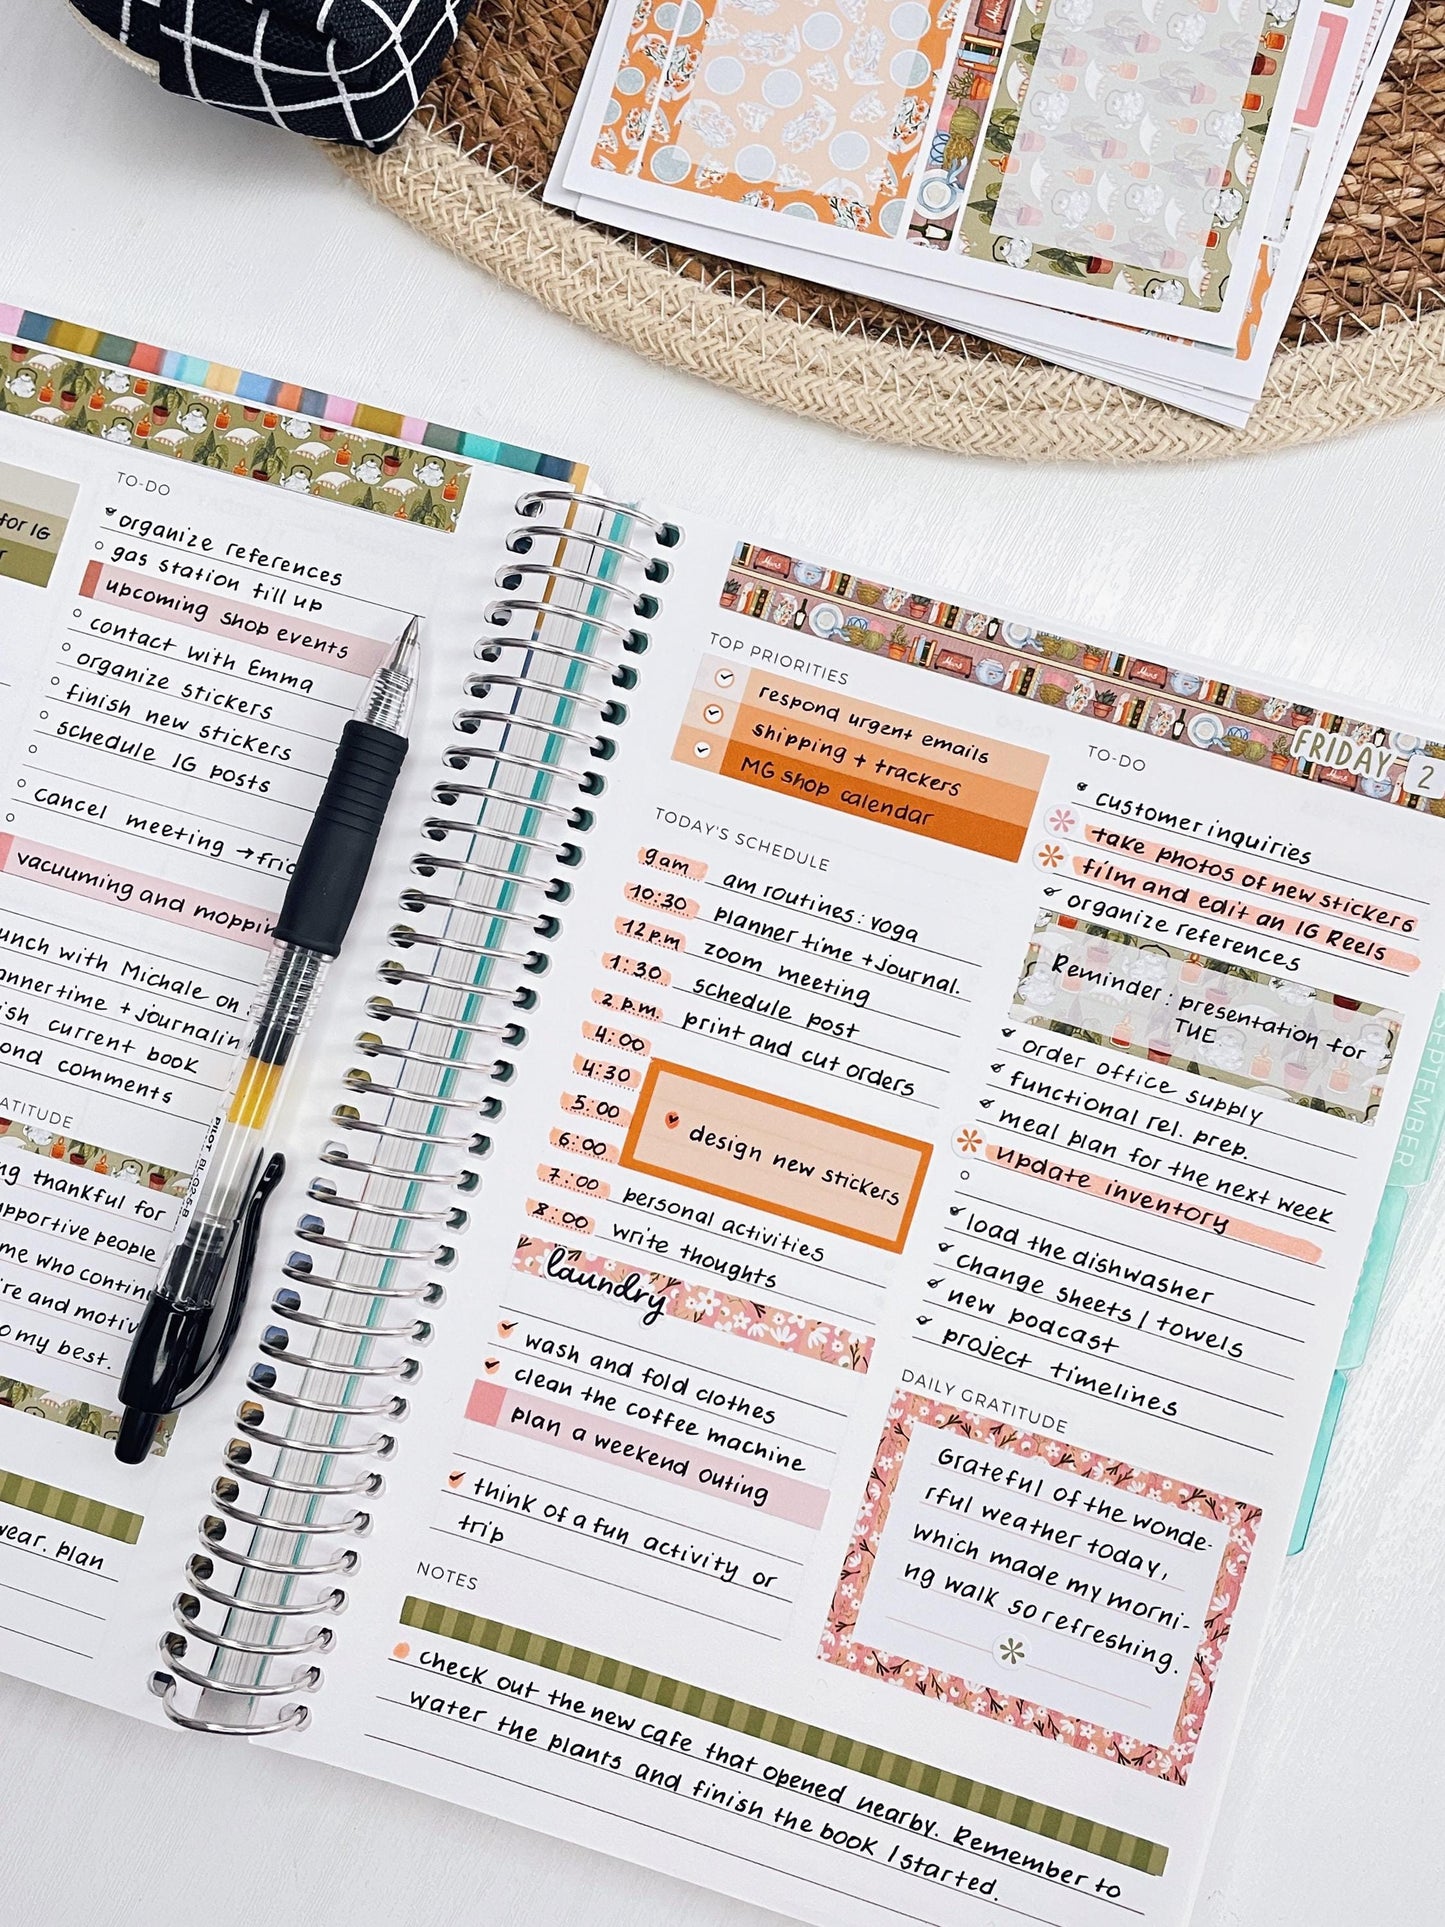 for IG
TO-DO
organize references
gas station fill up
upcoming shop events
contact with Emma
organize stickers
finish new stickers
schedule IG posts
cancel meeting →frid
vacuuming and moppin
unch with Michale on
annertime + journalin
ish current book
ond comments
ATITUDE
ng thankful for
upportive people
me who contin
re and motiv
o my best.
wear. plan
PILOT BL-G2-5-B
FRIDAY 2
TOP PRIORITIES
respond urgent emails
shipping + trackers
MG shop calendar
TODAY'S SCHEDULE
9am am routines: yoga
10:30 planner time + journal.
12p.m zoom meeting
1:30 schedule post
2 p.m. print and cut orders
4:00
4:30
5:00 design new stickers
6:00
7:00 personal activities
8:00 write thoughts
laundry
wash and fold clothes
clean the coffee machine
plan a weekend outing
think of a fun activity or
trip
TO-DO
customer inquiries
take photos of new stickers
film and edit an IG Reels
organize references
Reminder: presentation for
TUE
order office supply
functional rel. prep.
meal plan for the next week
update inventory
load the dishwasher
change sheets / towels
new podcast
project timelines
DAILY GRATITUDE
Grateful of the wonde-
rful weather today,
which made my morni-
ng walk so refreshing.
NOTES
check out the new cafe that opened nearby. Remember to
water the plants and finish the book I started.
SEPTEMBER